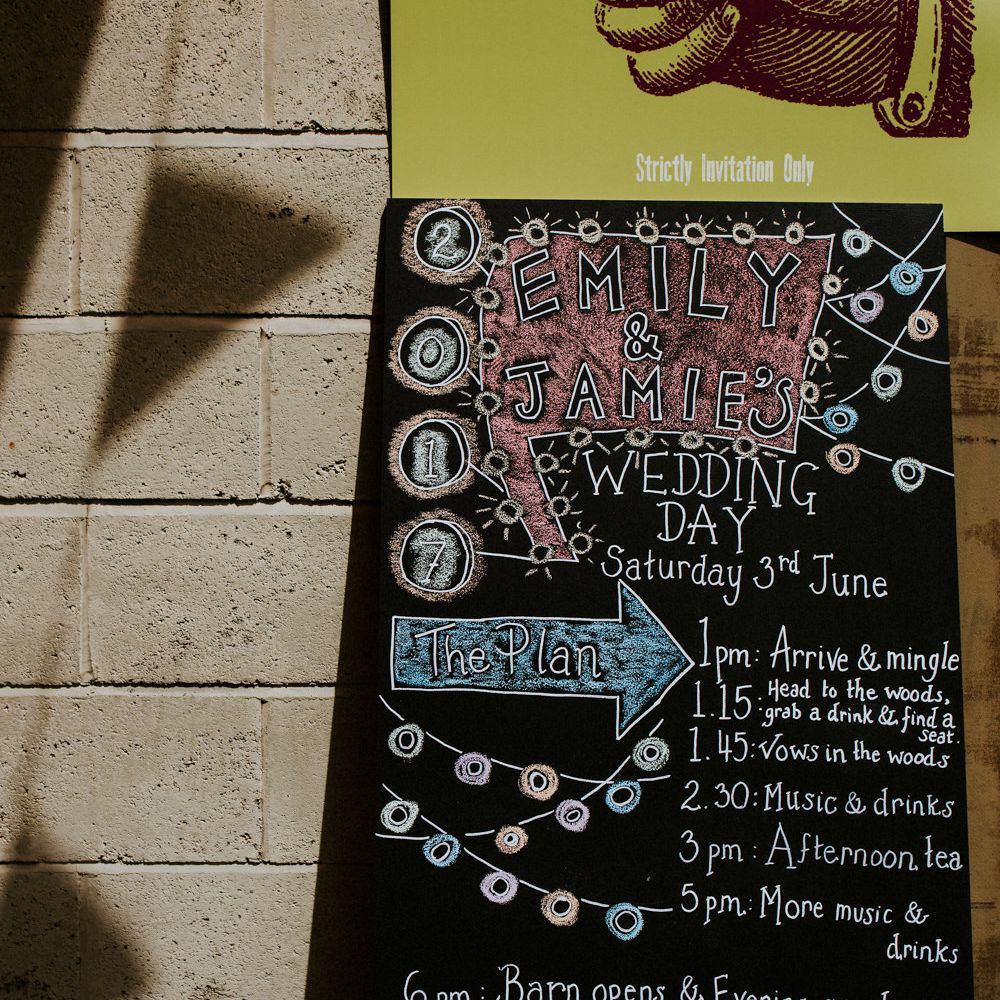 Strictly Invitation Only
2
0
1
7
EMILY
&
JAMIE'S
WEDDING
DAY
Saturday 3rd June
The Plan
1pm: Arrive & mingle
1.15: Head to the woods,
grab a drink & find a
seat.
1.45: Vows in the woods
2.30: Music & drinks
3pm: Afternoon tea
5pm: More music &
drinks
6pm: Barn opens &